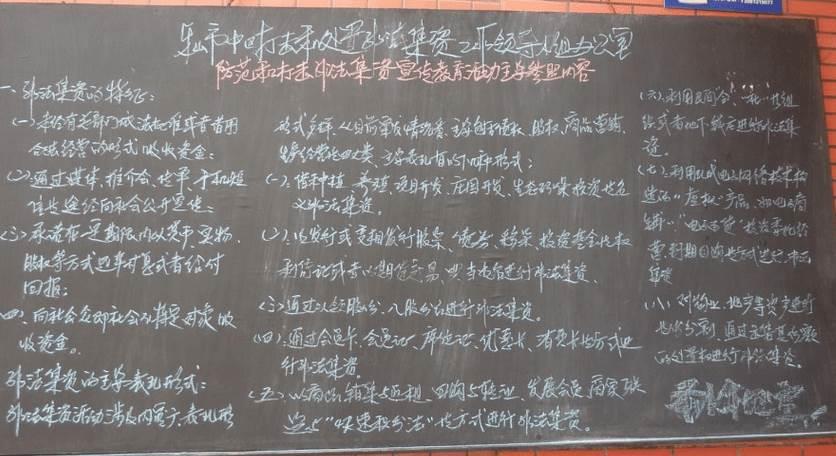 乐山市中区打击和处置非法集资工作领导小组办公室
防范和打击非法集资宣传教育活动主要参照内容
一、非法集资的特征：
(一)未经有关部门依法批准或者借用
合法经营的形式吸收资金；
(二)通过媒体、推介会、传单、手机短
信等途径向社会公开宣传；
(三)承诺在一定期限内以货币、实物、
股权等方式还本付息或者给付
回报；
四、向社会公众即社会不特定对象吸
收资金。
非法集资的主要表现形式：
非法集资活动涉及内容广，表现形
式多样，从目前案发情况看，主要包括债权、股权、商品营销、
生产经营等四大类，主要表现有以下几种形式：
(一)、借种植、养殖、项目开发、庄园开发、生态环保投资等名
义非法集资。
(二)、以发行或变相发行股票、债券、彩票、投资基金等权
利凭证或者以期货交易、典当为名进行非法集资。
(三)通过认领股份、入股分红进行非法集资。
(四)、通过会员卡、会员证、席位证、优惠卡、消费卡等方式进
行非法集资
(五)、以商品销售与返租、回购与转让、发展会员、商家联
盟与“快速积分法”等方式进行非法集资。
(六)、利用民间会、社等组
织或者地下钱庄进行非法集
资。
(七)、利用现代电子网络技术构
造的“虚拟”产品，如电子商
铺、电子百货投资委托经
营、到期回购等方式进行非法
集资
(八)、对物业、地产等资产进行
等份分割，通过出售其份额
的处置权进行非法集资。